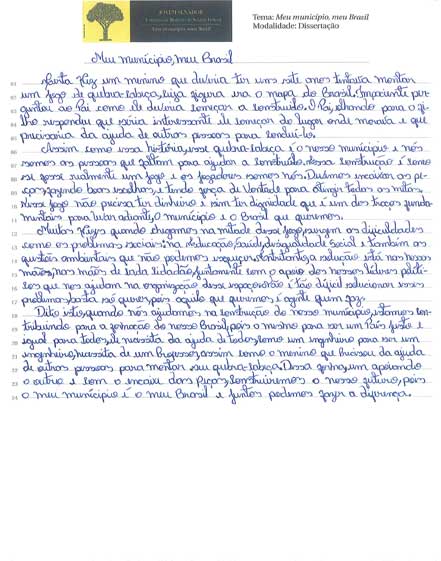 JOVEM SENADOR
Tema: Meu município, meu Brasil
Modalidade: Dissertação
Meu município, meu Brasil
Certa vez um menino que deveria ter uns sete anos tentava montar
um jogo de quebra-cabeça, cuja figura era o mapa do Brasil. Impaciente per-
guntou ao Pai como ele deveria começar a construção. O Pai, olhando para o fi-
lho respondeu que seria interessante ele começar do lugar onde morava e que
precisaria da ajuda de outras pessoas para concluí-lo.
Assim como essa história, esse quebra-cabeça é o nosso município e nós
somos as pessoas que faltam para ajudar a construí-lo. Nessa construção é como
se fosse realmente um jogo e os jogadores somos nós. Devemos encaixar as pe-
ças, fazendo boas escolhas, e tendo força de vontade para atingir todas as metas.
Nesse jogo não precisa ter dinheiro e sim ter dignidade que é um dos traços funda-
mentais para levar adiante, o município e o Brasil que queremos.
Muitas vezes quando chegamos na metade desse jogo, surgem as dificuldades
como os problemas sociais: na educação, saúde, desigualdade social e também as
questões ambientais que não podemos esquecer. Entretanto, a solução está nas nossas
mãos, nas mãos de cada cidadão, juntamente com o apoio dos nossos líderes políti-
cos que nos ajudam na organização desse espaço. Não é tão difícil solucionar esses
problemas, basta só querer, pois aquilo que queremos, a gente faz.
Dito isto, quando nós ajudamos na construção do nosso município, estamos con-
tribuindo para a formação do nosso Brasil, pois o mesmo para ser um País justo e
igual para todos, necessita da ajuda de todos, como um engenheiro para ser um
engenheiro, necessita de um Professor, assim como o menino que precisou da ajuda
de outras pessoas para montar seu quebra-cabeça. Dessa forma, um apoiando
o outro e com o encaixe das peças, construiremos o nosso futuro, pois
o meu município é o meu Brasil e juntos podemos fazer a diferença.